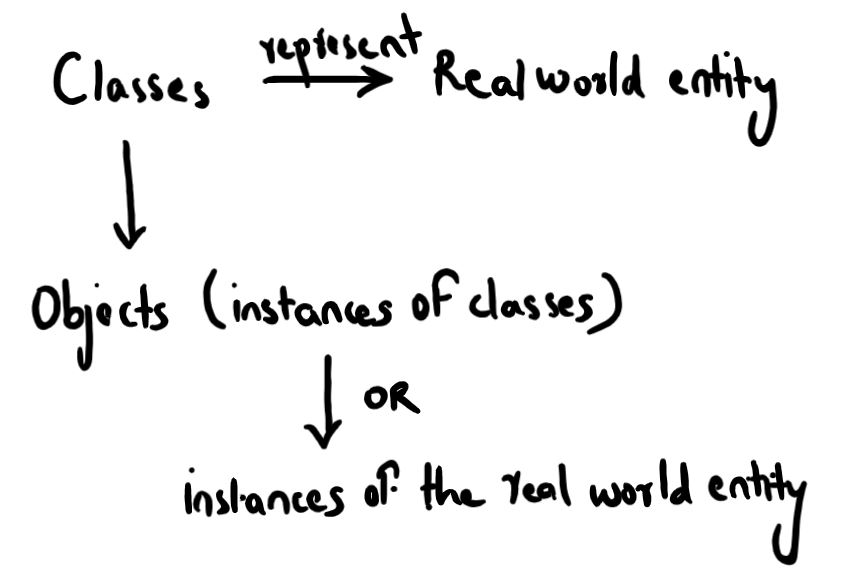 Classes represent Real world entity
Objects (instances of classes)
OR
instances of the real world entity